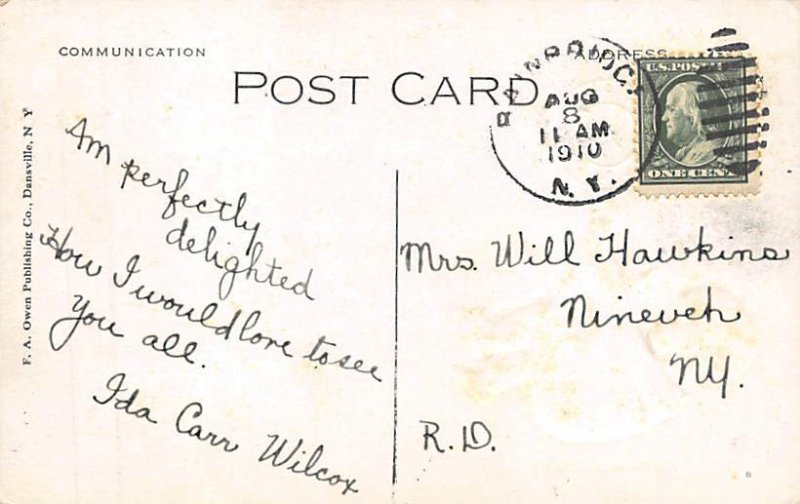 COMMUNICATION
ADDRESS
POST CARD
BAINBRIDGE
AUG
8
11 AM
1910
N. Y.
U.S. POST
ONE CENT
F. A. Owen Publishing Co., Dansville, N Y
Am perfectly
delighted
How I would love to see
you all.
Ida Carr Wilcox
Mrs. Will Hawkins
Nineveh
NY.
R.D.